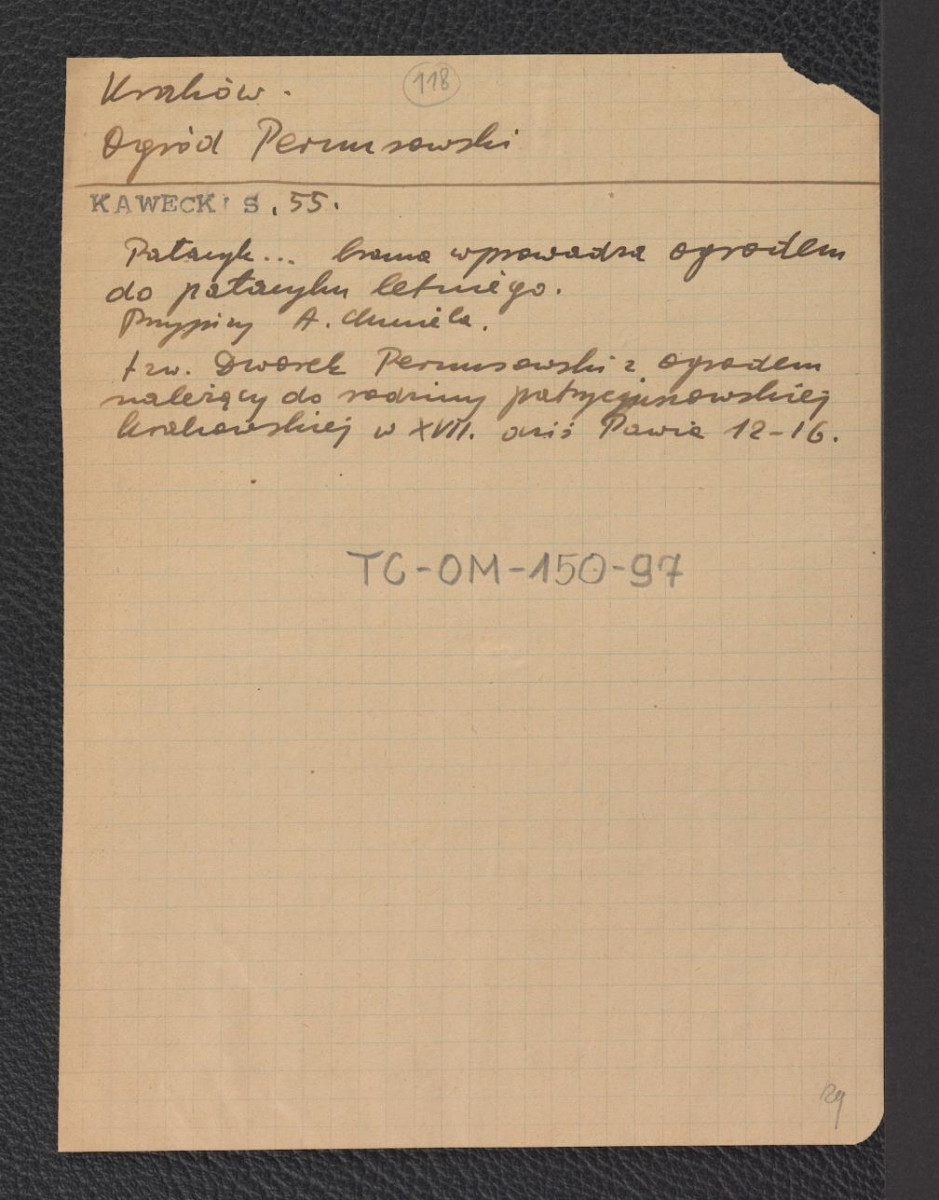 118
Kraków.
Ogród Pernusowski
KAWECKI S. 55.
Pałacyk... brama wprowadza ogrodem
do pałacyku letniego.
Przypisy A. Chmiela.
tzw. Dworek Pernusowski z ogrodem
należący do rodziny patrycjuszowskiej
krakowskiej w XVII. dziś Pawia 12-16.
TC-OM-150-97